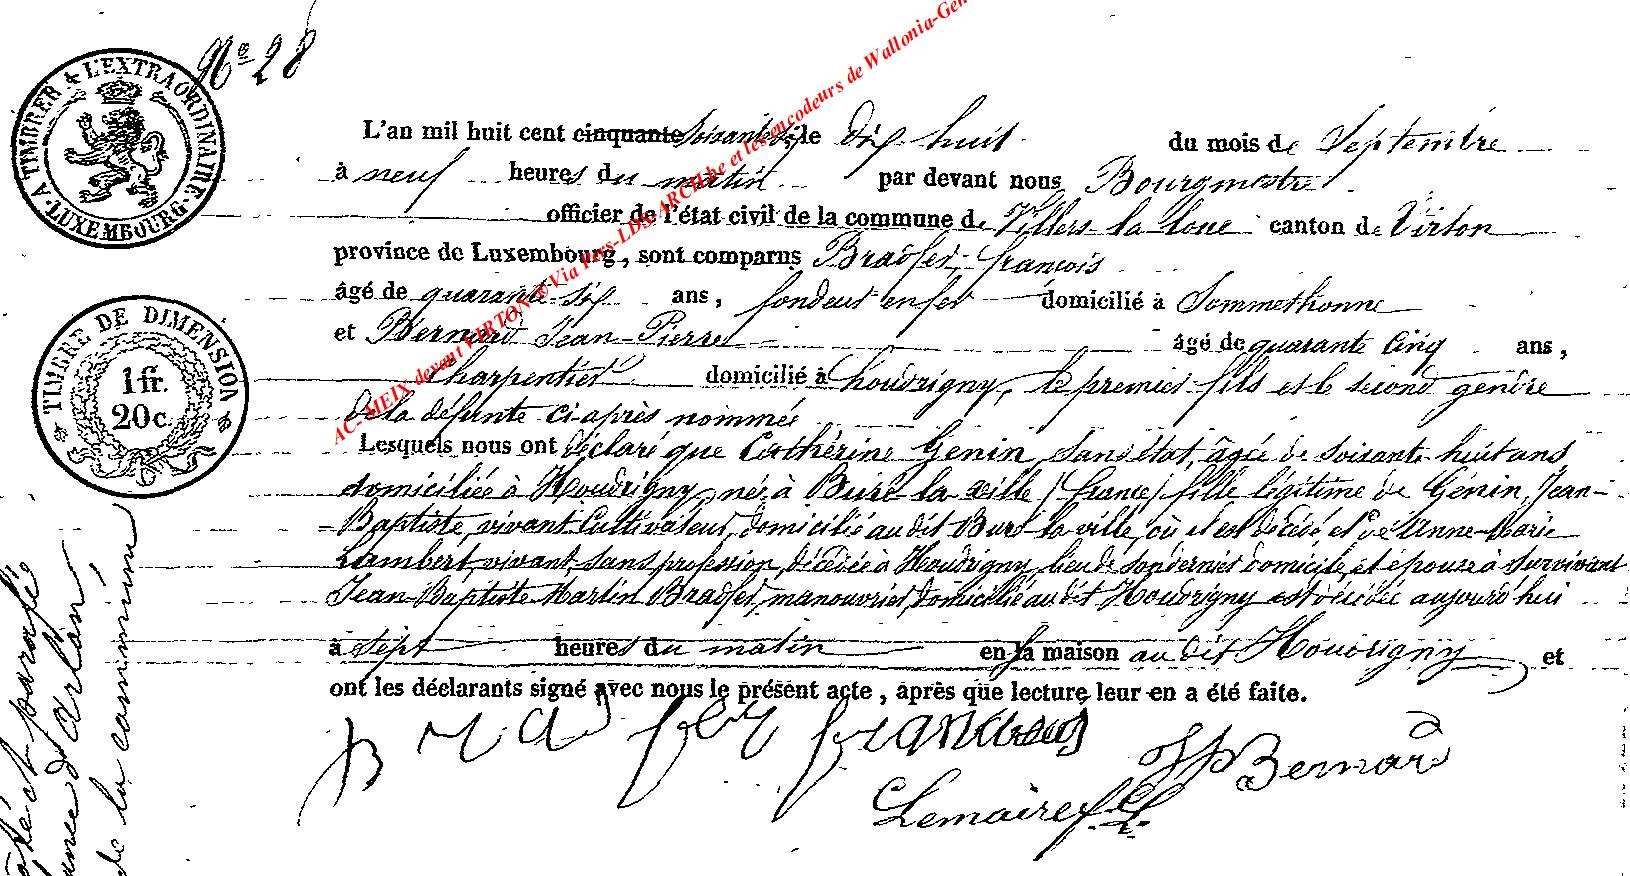 Nº 28
A TIMBRER A L'EXTRAORDINAIRE. LUXEMBOURG.
L'an mil huit cent cinquante soixante six, le dix huit du mois de Septembre
à neuf heures du matin par devant nous Bourgmestre
officier de l'état civil de la commune de Villers-la-loue canton de Virton
province de Luxembourg, sont comparus Bradfer, françois
âgé de quarante-six ans, fondeur en fer domicilié à Sommethonne
TIMBRE DE DIMENSION
1 fr.
20 c.
et Bernard Jean-Pierre âgé de quarante cinq ans,
Charpentier domicilié à houdrigny, le premier fils et le second gendre
de la défunte ci-après nommée
Lesquels nous ont déclaré que Cathérine Genin, sans état, âgée de soixante-huit ans
domiciliée à Houdrigny, née à Buré-la-ville (france) fille légitime de Génin, Jean-
-Baptiste, vivant Cultivateur, domicilié au dit Buré-la-ville, où il est décédé, et d'Anne-Marie
Lambert, vivant, sans profession, décédée à Houdrigny, lieu de son dernier domicile, et épouse à survivant
Jean-Baptiste-Martin Bradfer, manouvrier, domicilié au dit Houdrigny est décédée aujourd'hui
à sept heures du matin en sa maison au dit Houdrigny, et
ont les déclarants signé avec nous le présent acte, après que lecture leur en a été faite.
Bradfer francois
JP Bernard
Lemaire
et parafé
d'Arlon
de la commune
AC-MEIX devant VIRTON © Via Fam-LDS-ARCH.be et les encodeurs de Wallonia-Gen